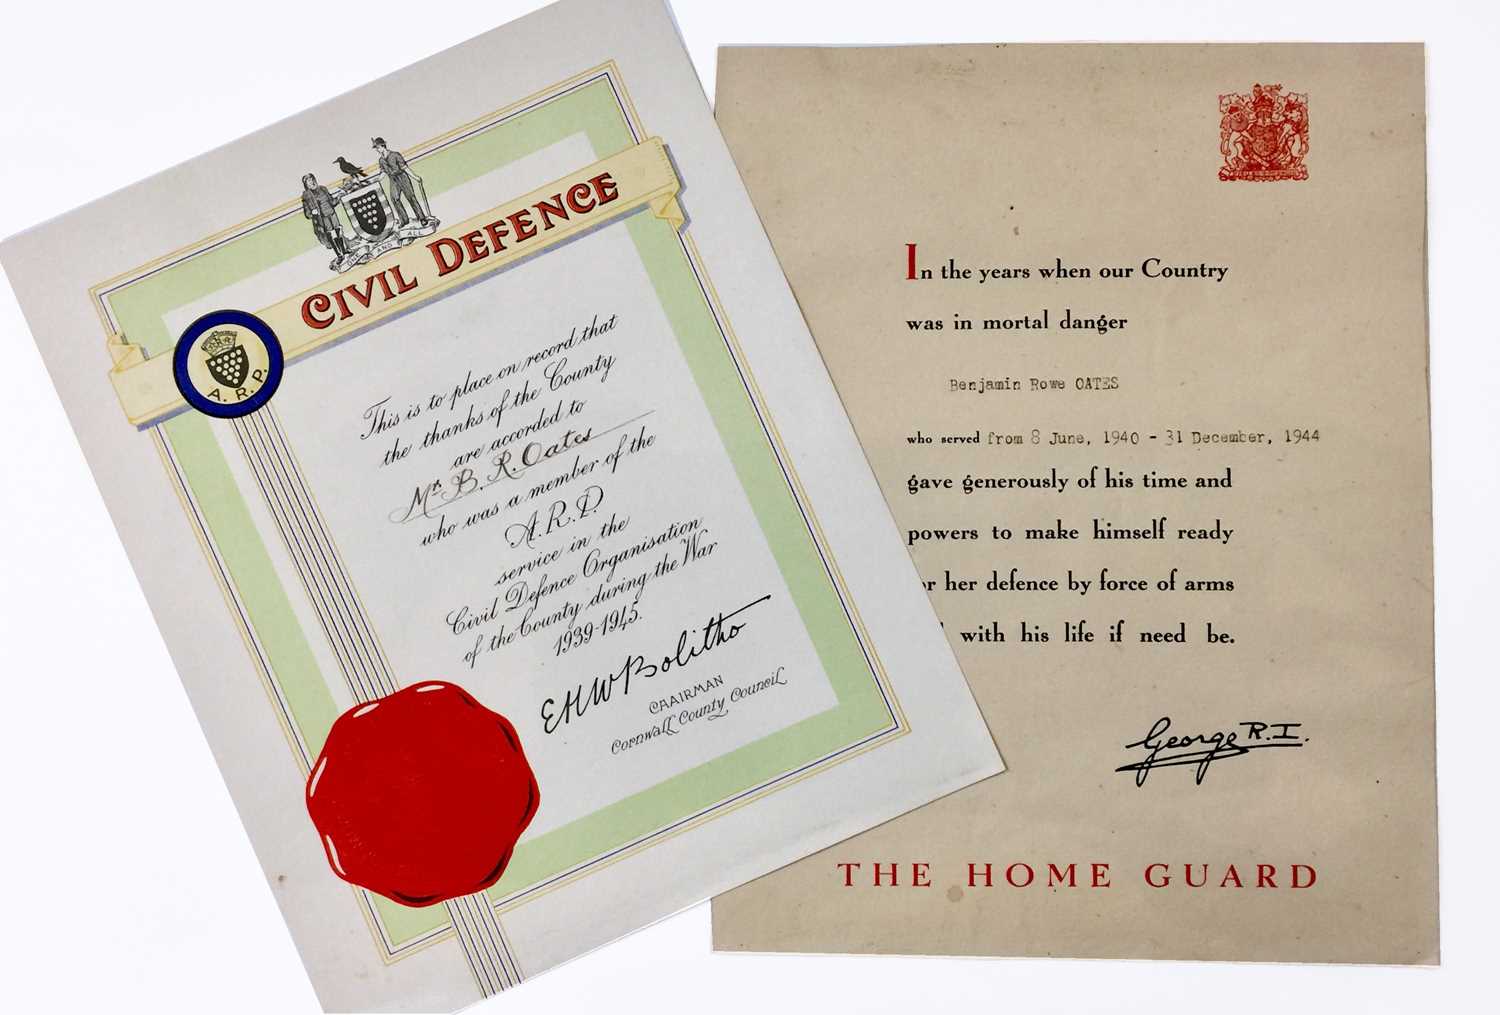 ONE AND ALL
CIVIL DEFENCE
A. R. P.
This is to place on record that
the thanks of the County
are accorded to
Mr. B. R. Oates
who was a member of the
A.R.P.
service in the
Civil Defence Organisation
of the County during the War
1939-1945.
EHW Bolitho
CHAIRMAN
Cornwall County Council
In the years when our Country
was in mortal danger
Benjamin Rowe OATES
who served from 8 June, 1940 - 31 December, 1944
gave generously of his time and
powers to make himself ready
her defence by force of arms
with his life if need be.
George R.I.
THE HOME GUARD